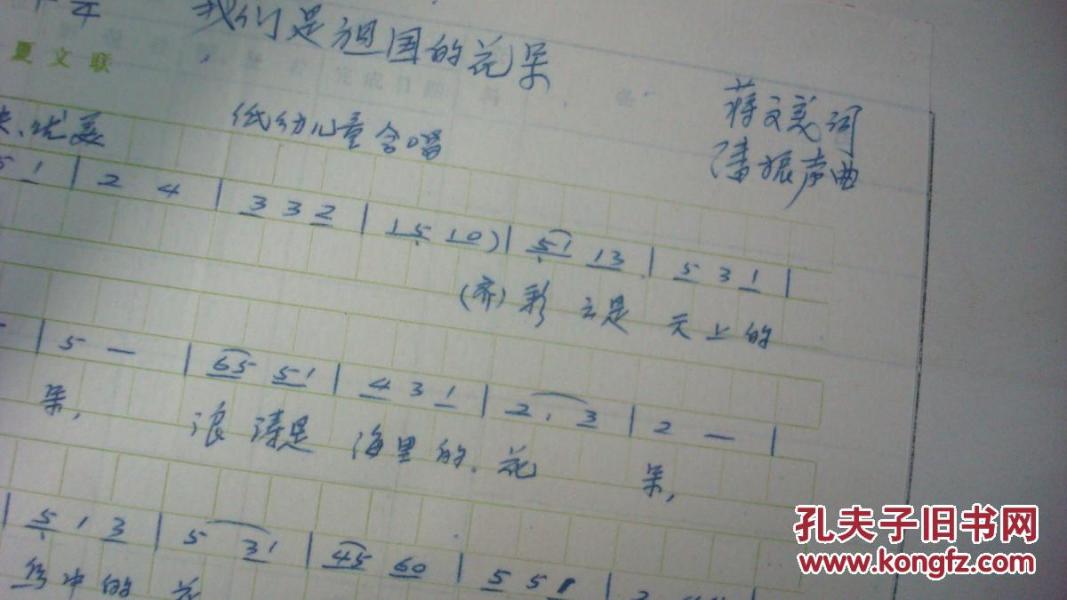 我们是祖国的花朵
夏文联
蒋文美词
优美 低幼儿童合唱
潘振声曲
5 1 | 2 4 | 3 3 2 | 1 5 1 0 ) | 5 1 1 3 | 5 3 1 |
(齐) 彩 云是 天上的
— | 5 — | 6 5 5 1 | 4 3 1 | 2. 3 | 2 — |
朵, 浪 涛是 海里的 花 朵,
| 5 1 3 | 5 3 1 | 4 5 6 0 | 5 5
中的 花
孔夫子旧书网
www.kongfz.com